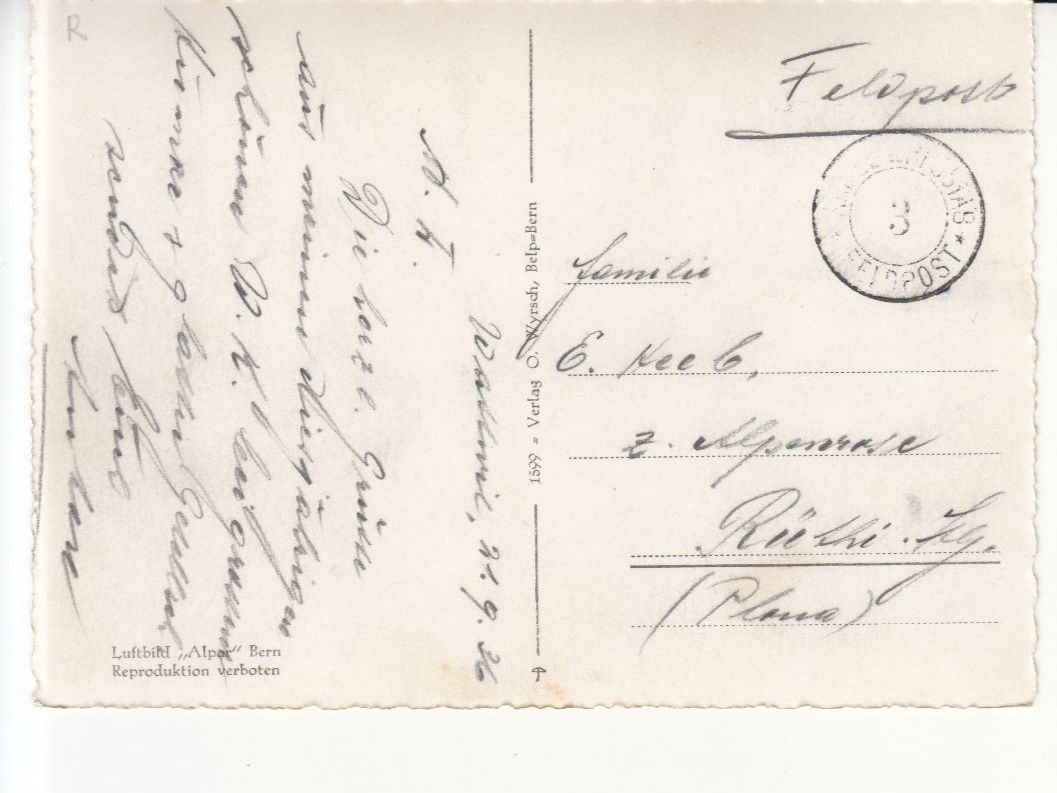 R
Feldpost
3
FELDPOST
Familie
E. Heeb,
z. Alpenrose
Rüthi. Stg.
(Plona)
1599 = Verlag O. Wyrsch, Belp=Bern
Wattwil, 21.9.36
Die herzl. Grüsse
aus meinem diesjährigen
schönen W.K.
sendet Euch
Luftbild „Alpar" Bern
Reproduktion verboten